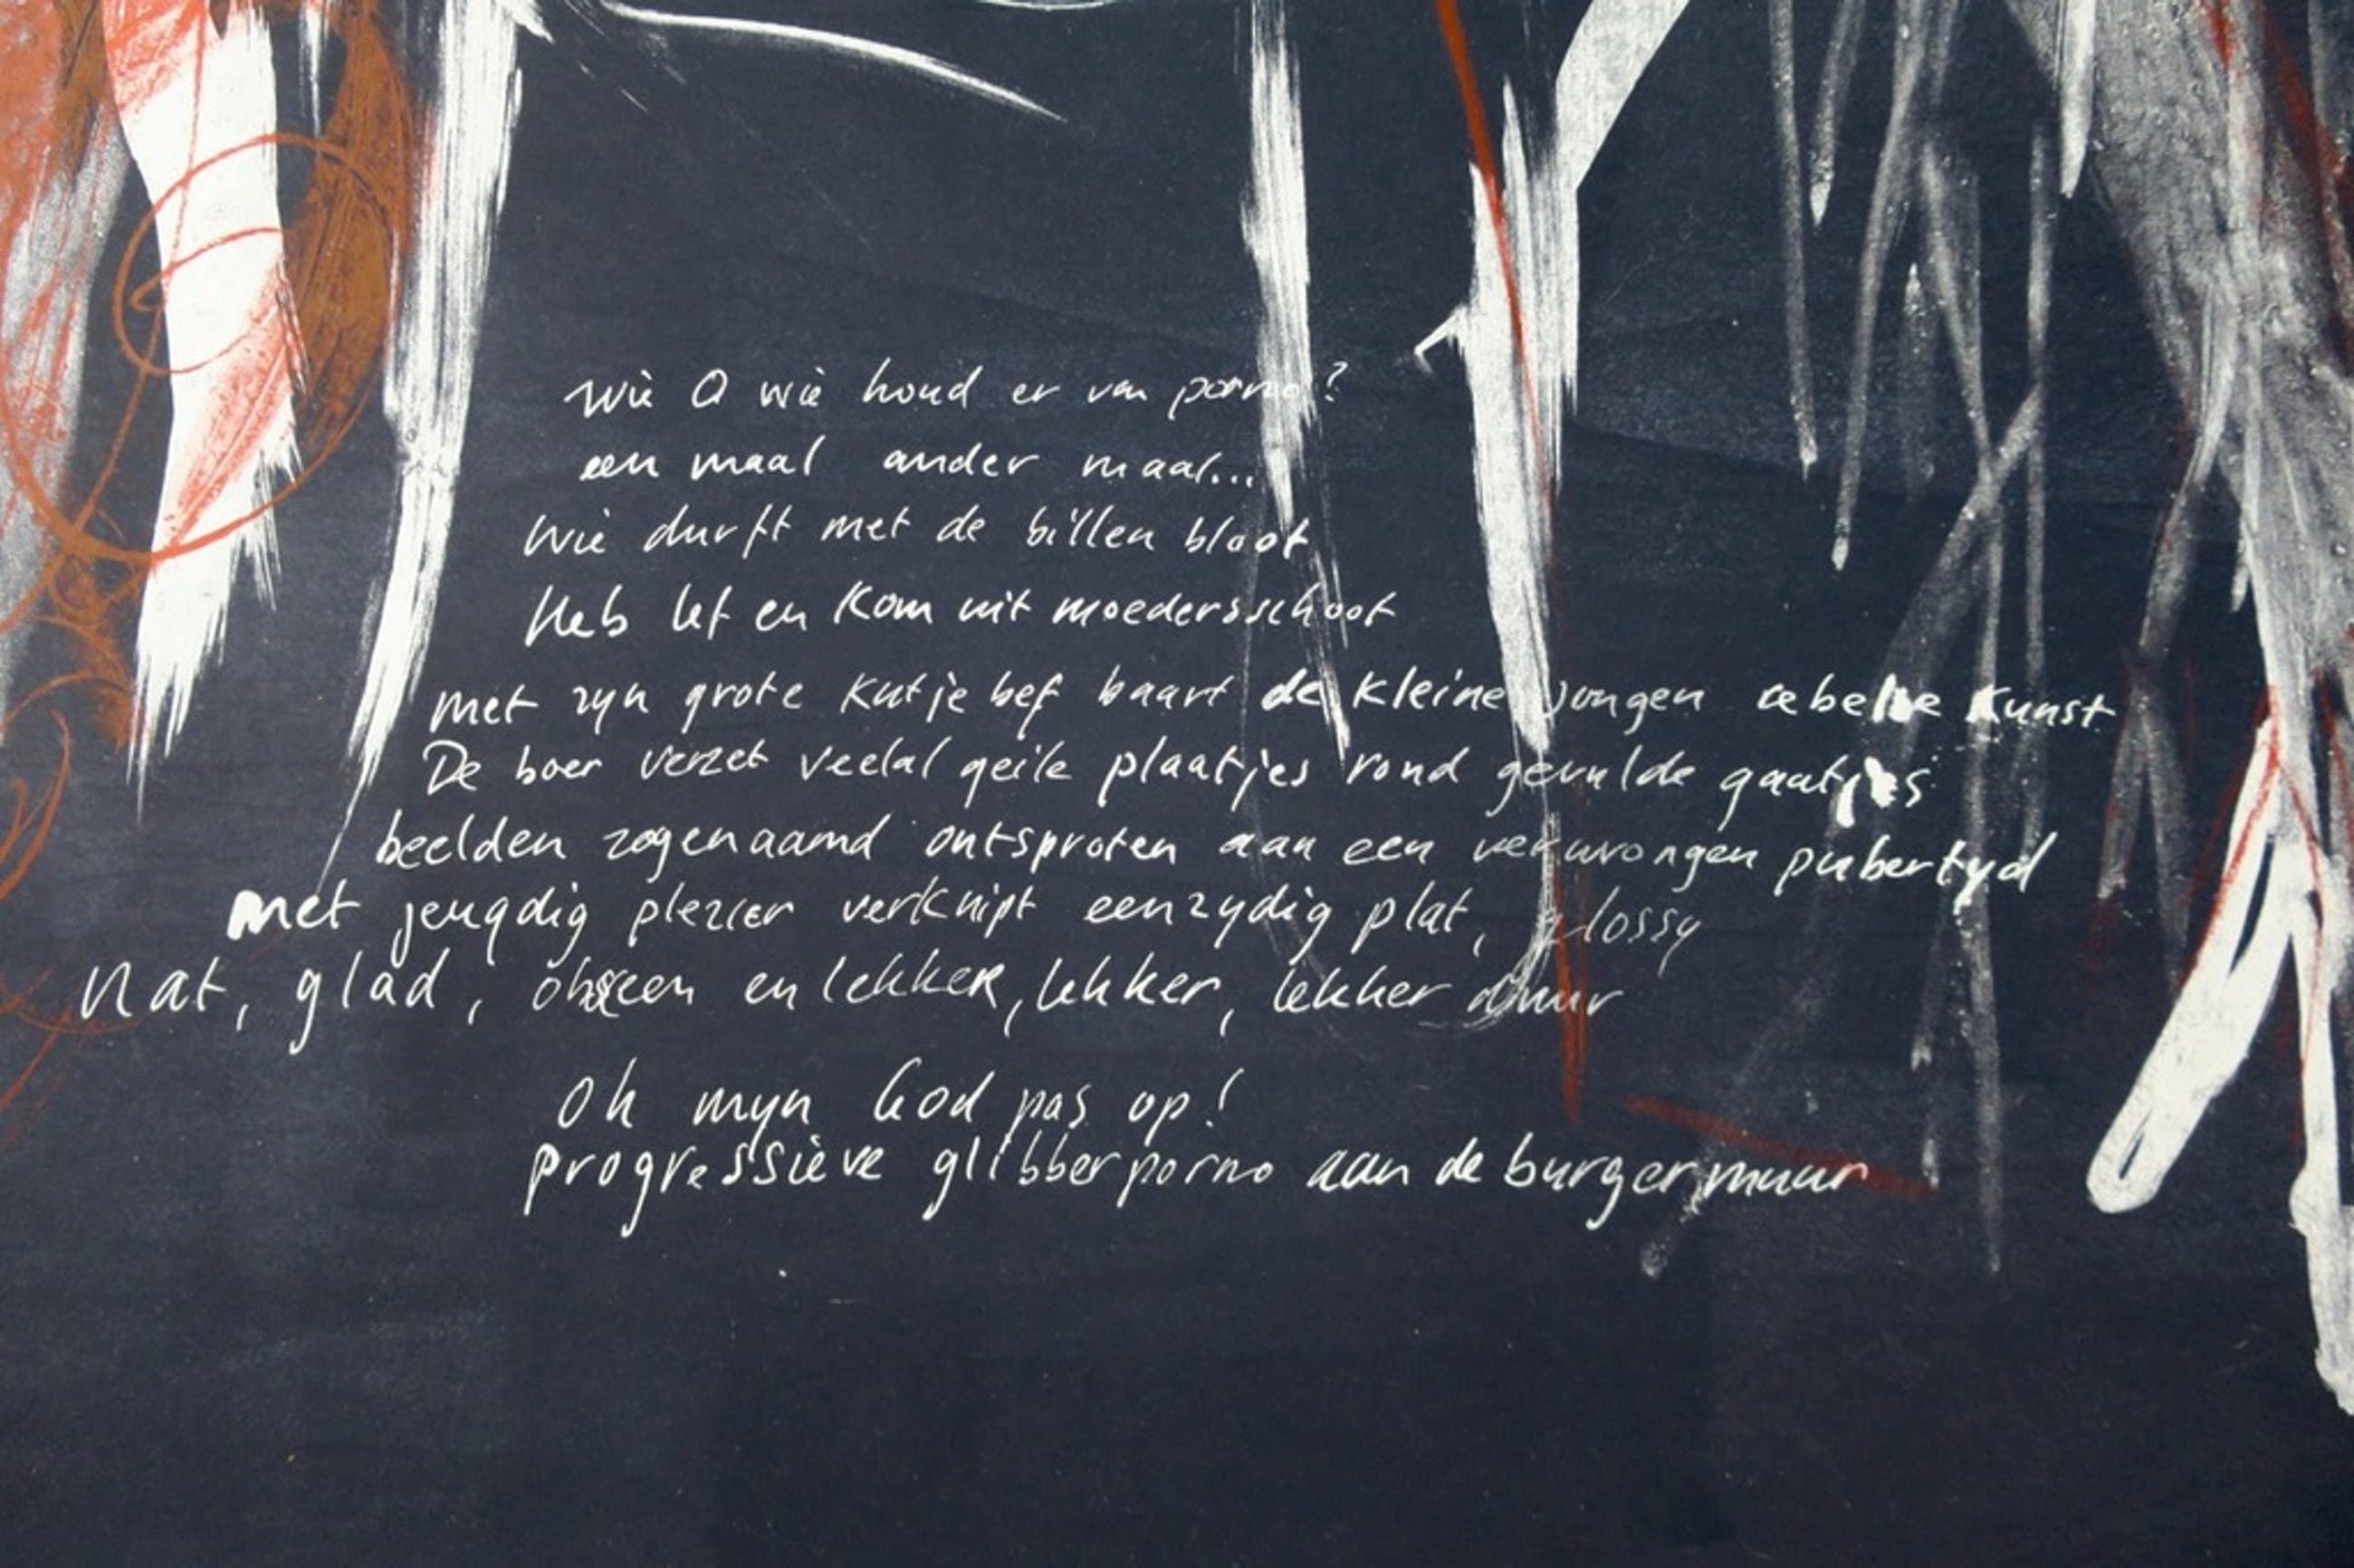 Wie O wie houd er van porno?
een maal ander maal...
Wie durft met de billen bloot
Heb lef en kom uit moedersschoot
met zyn grote kutje bef baart de kleine jongen rebelse kunst
De boer verzet veelal geile plaatjes rond gevulde gaatjes
beelden zogenaamd ontsproten aan een verwrongen pubertyd
met jeugdig plezier verknipt eenzydig plat, glossy
nat, glad, obsceen en lekker, lekker, lekker duur
Oh myn God pas op!
progressieve glibberporno aan de burgermuur